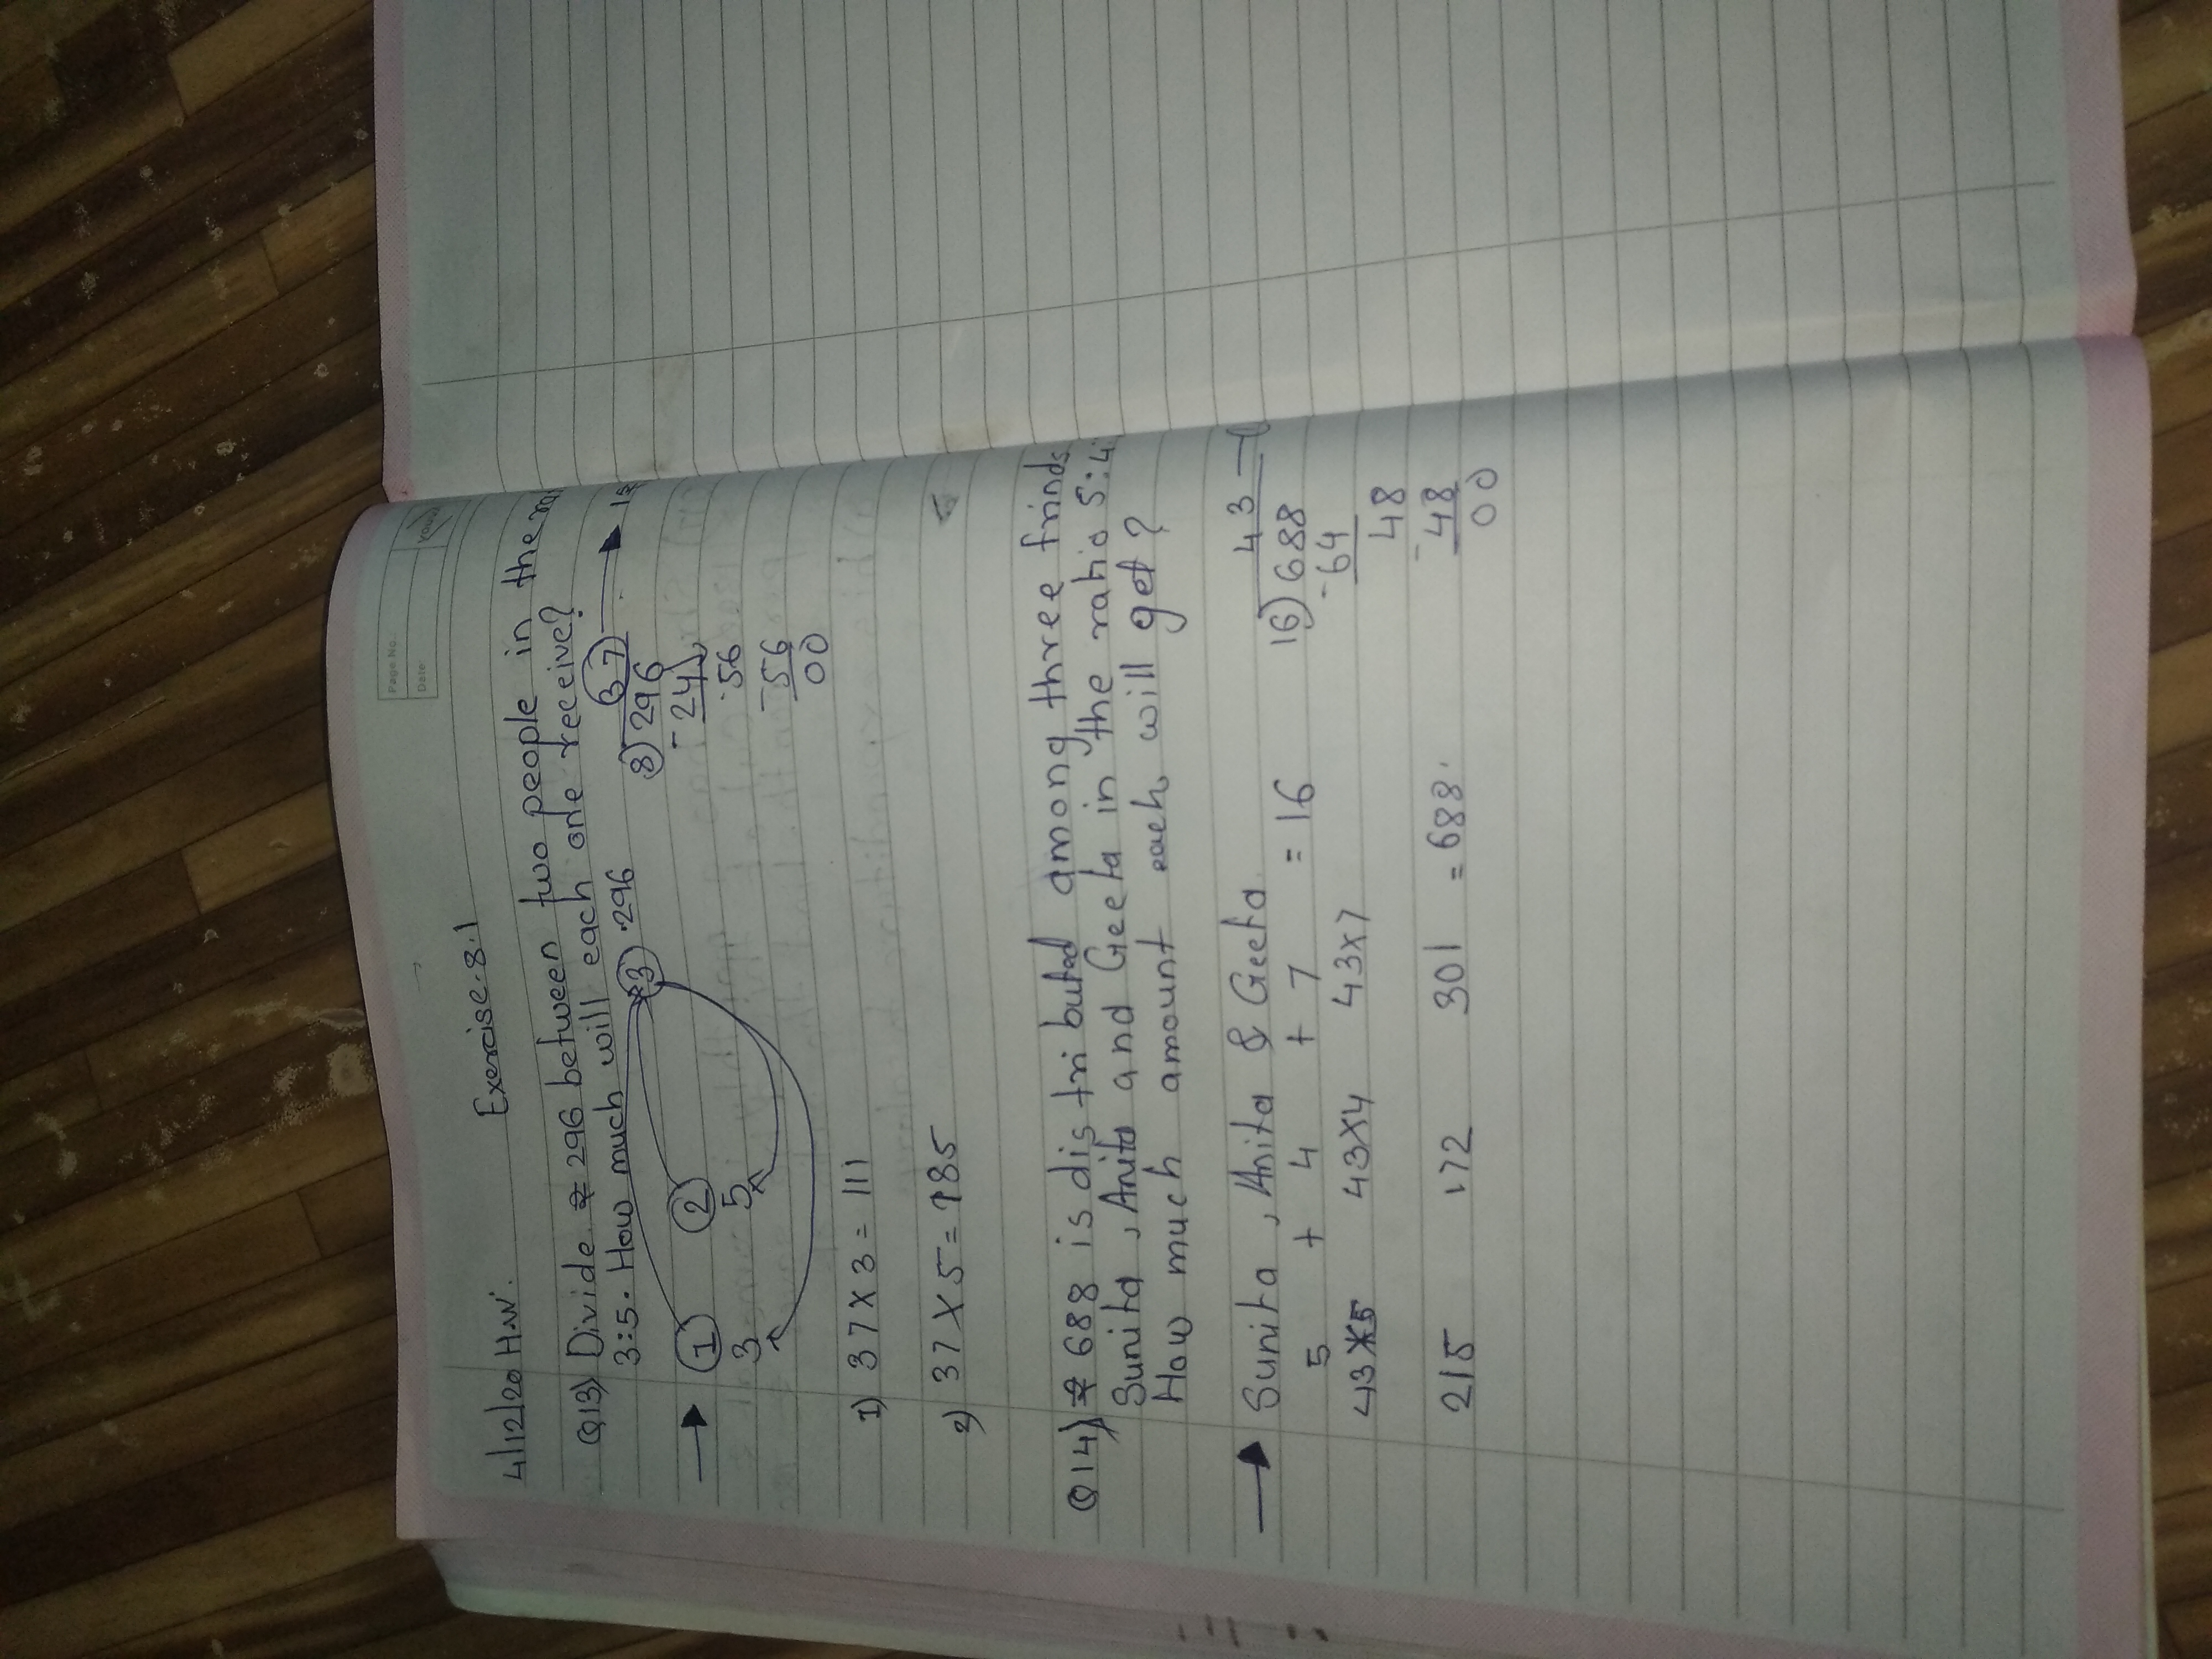 Page No.
Date
4/12/20 H.W. Exercise-8.1
Q13) Divide ₹ 296 between two people in the
3:5. How much will each one receive?
→ 1 2 8 296 8)296 37 →
3 5 -24
56
-56
00
1) 37 X 3 = 111
2) 37 X 5 = 185
Q14) ₹ 688 is dis tri buted among three frinds
Sunita, Anita and Geeta in the ratio 5:4
How much amount each will get?
→ Sunita, Anita & Geeta 16)688 43
5 + 4 + 7 = 16 -64
43X5 43X4 43X7 48
215 172 301 = 688. -48
00